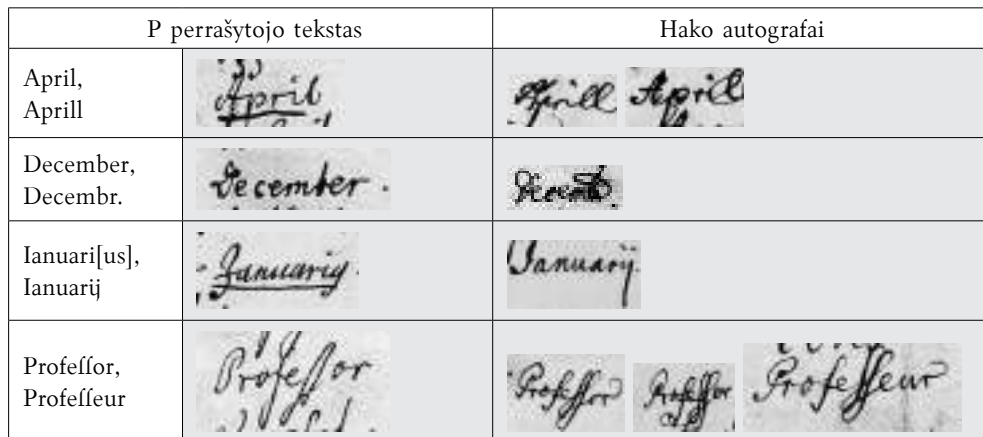 P perrašytojo tekstas Hako autografai
April,
Aprill
April Aprill Aprill
December,
Decembr.
December. Decemb
Ianuari[us],
Ianuarij
Januarig Ianuarij
Profeſſor,
Profeſſeur
Profeſſor Profeſſor Profeſſor Profeſſeur